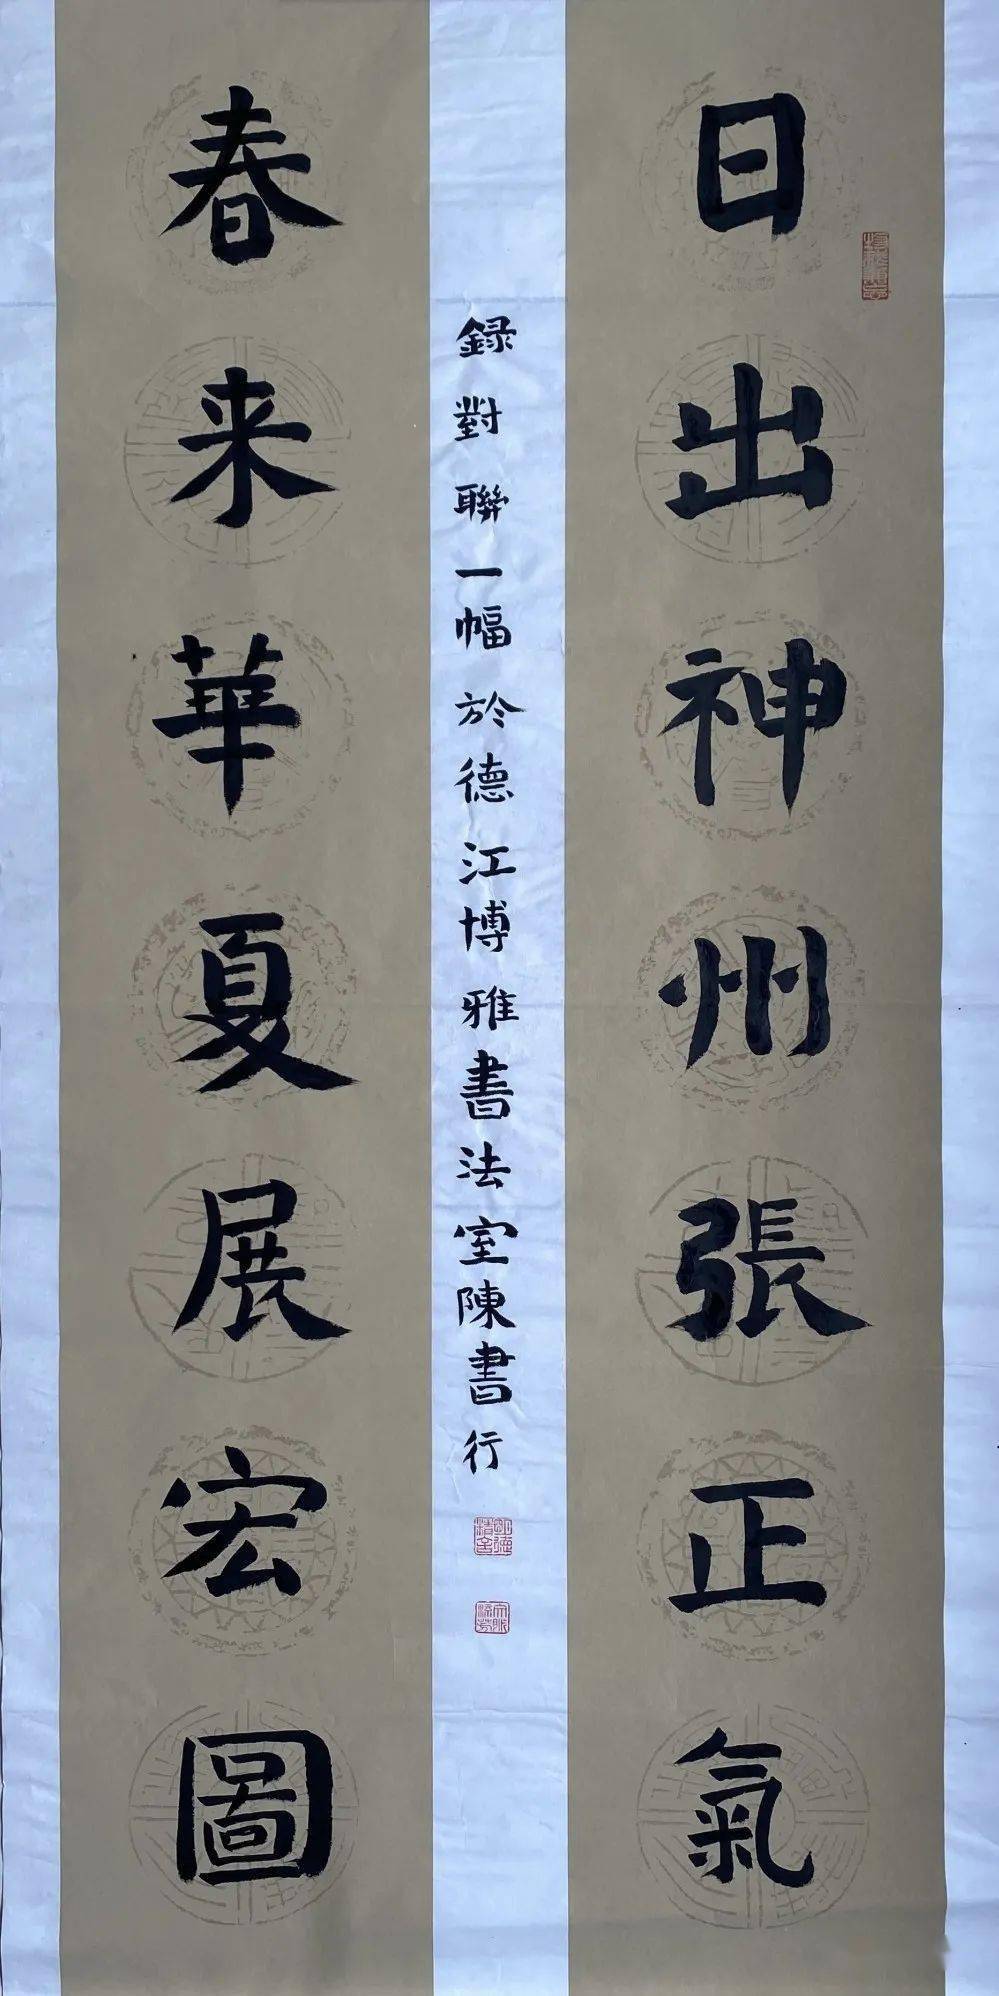 日出神州張正氣
春来華夏展宏圖
録對聯一幅於德江博雅書法室陳書行